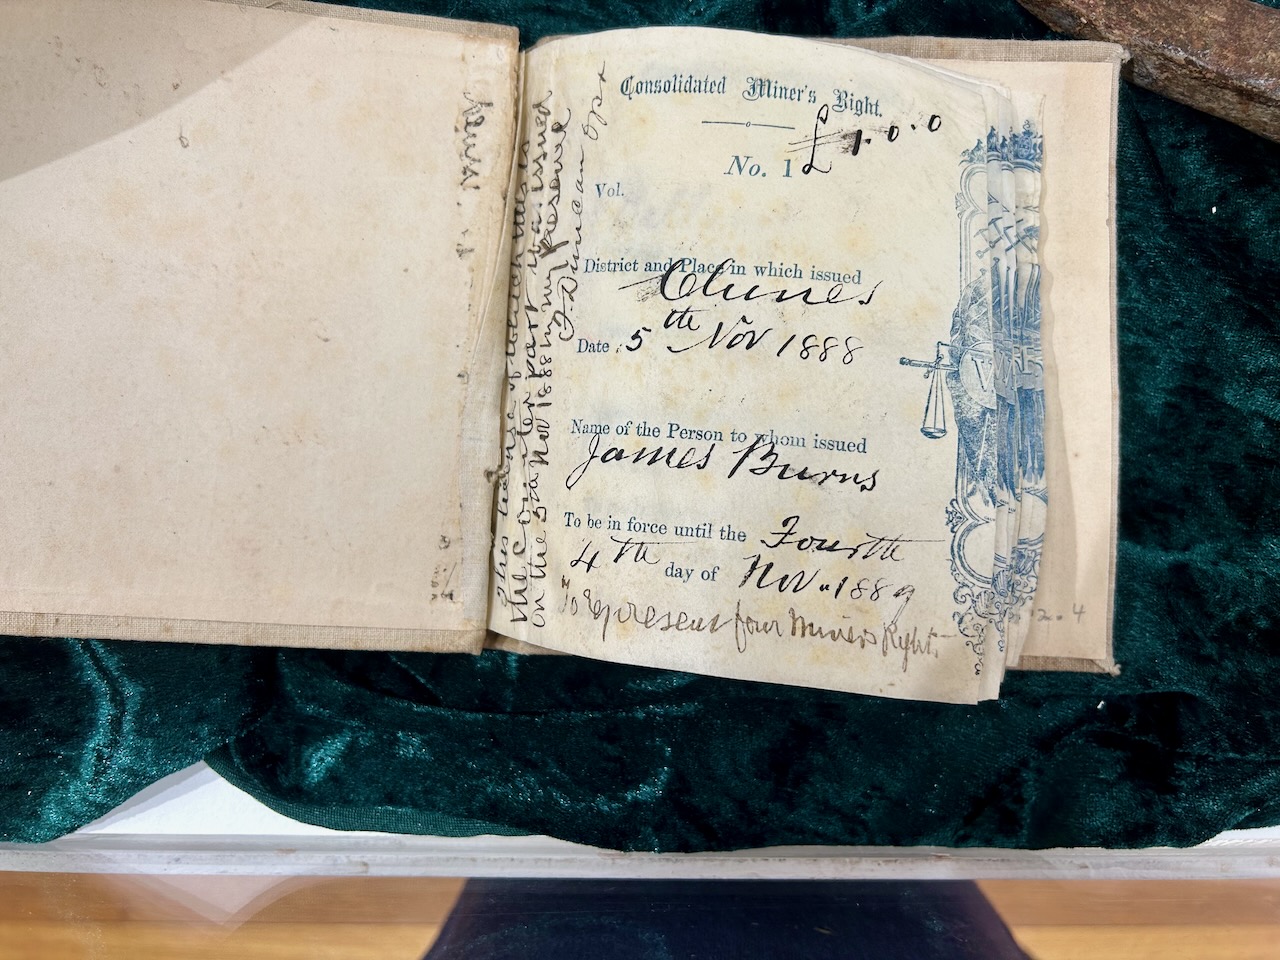 Consolidated Miner's Right.
£1.0.0
No. 1
Vol.
District and Place in which issued
Clunes
Date 5th Nov 1888
Name of the Person to whom issued
James Burns
To be in force until the Fourth
4th day of Nov. 1889
To represent four Miner's Right.
This license of which this is
the counter part was issued
on the 5th Nov 1888 in my presence
J Duncan